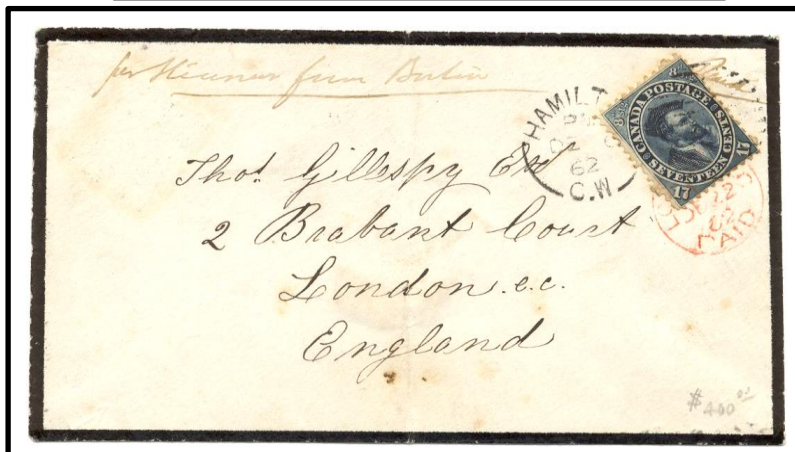 per Steamer from Boston
Paid
HAMILT
PM
DE
62
C.W
8d stg
CANADA POSTAGE
SEVENTEEN CENTS
17
17
PAID
Thos. Gillespy Esq
2 Brabant Court
London. e.c.
England
$400.00